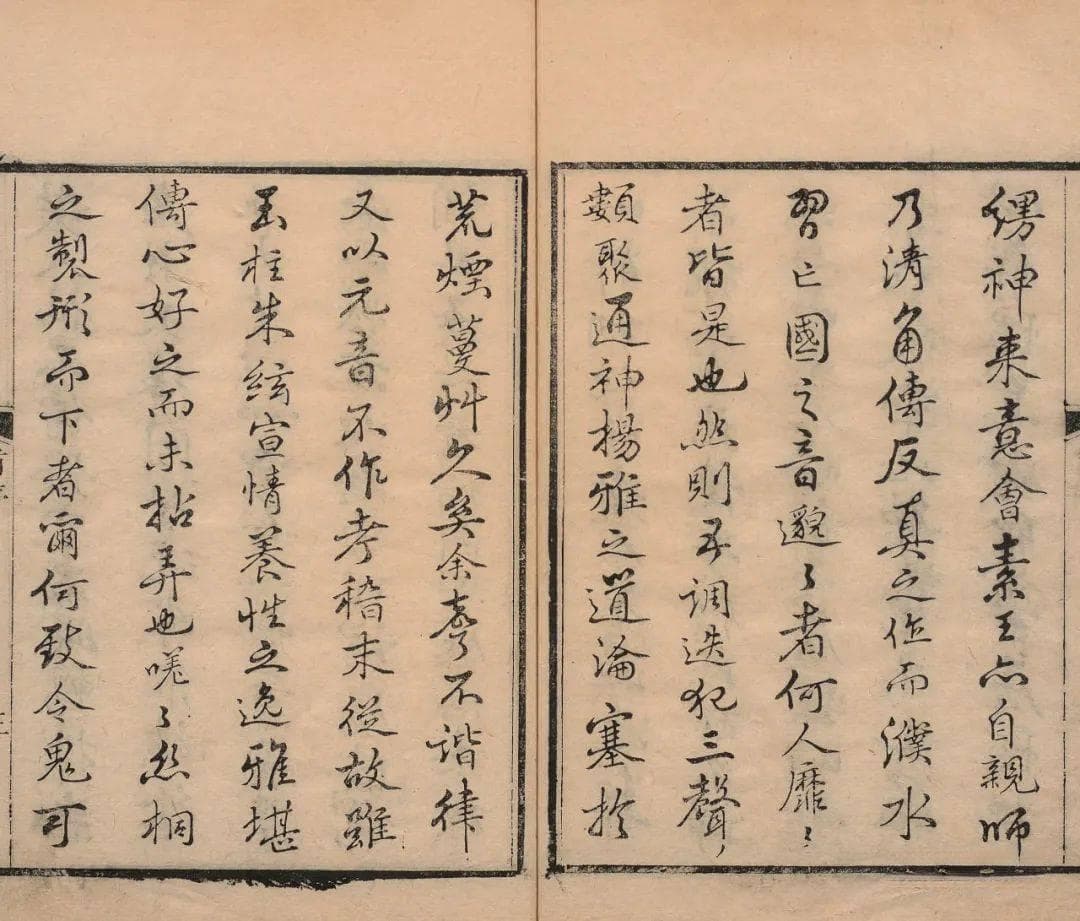 繆神来意會素王亦自親師
乃清角傳反真之作而濮水
習亡國之音邈〻者何人靡〻
者皆是也然則五调迭犯三聲
類聚通神揚雅之道淪塞於
荒煙蔓艸久矣余耆不谐律
又以元音不作考稽末從故雖
玉柱朱絃宣情養性之逸雅堪
傳心好之而未拈弄也嗟〻絲桐
之製形而下者爾何致令鬼可